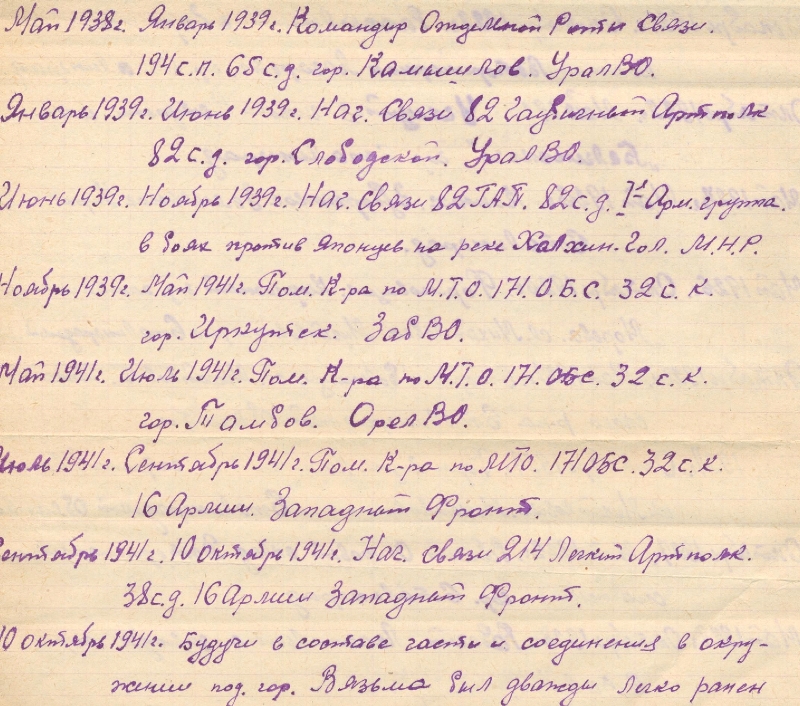 Май 1938г. Январь 1939г. Командир Отдельной Роты Связи.
194 с.п. 65 с.д. гор. Камышлов. УралВО.
Январь 1939г. Июнь 1939г. Нач. Связи 82 Гаубичный Артполк
82 с.д. гор. Слободской. УралВО.
Июнь 1939г. Ноябрь 1939г. Нач. связи 82 ГАП. 82 с.д. 1я Арм. группа.
в боях против Японцев на реке Халхин-Гол. М.Н.Р.
Ноябрь 1939г. Май 1941г. Пом. К-ра по М.Т.О. 171. О.Б.С. 32 с.к.
гор. Иркутск. ЗабВО.
Май 1941г. Июль 1941г. Пом. К-ра по М.Т.О. 171. ОБС. 32 с.к.
гор. Тамбов. ОрелВО.
Июль 1941г. Сентябрь 1941г. Пом. К-ра по МТО. 171 ОБС. 32 с.к.
16 Армии. Западный Фронт.
Сентябрь 1941г. 10 октябрь 1941г. Нач. связи 214 Легкий Артполк.
38 с.д. 16 Армии Западный Фронт.
10 октябрь 1941г. Будучи в составе части и соединения в окру-
жении под. гор. Вязьма был дважды легко ранен